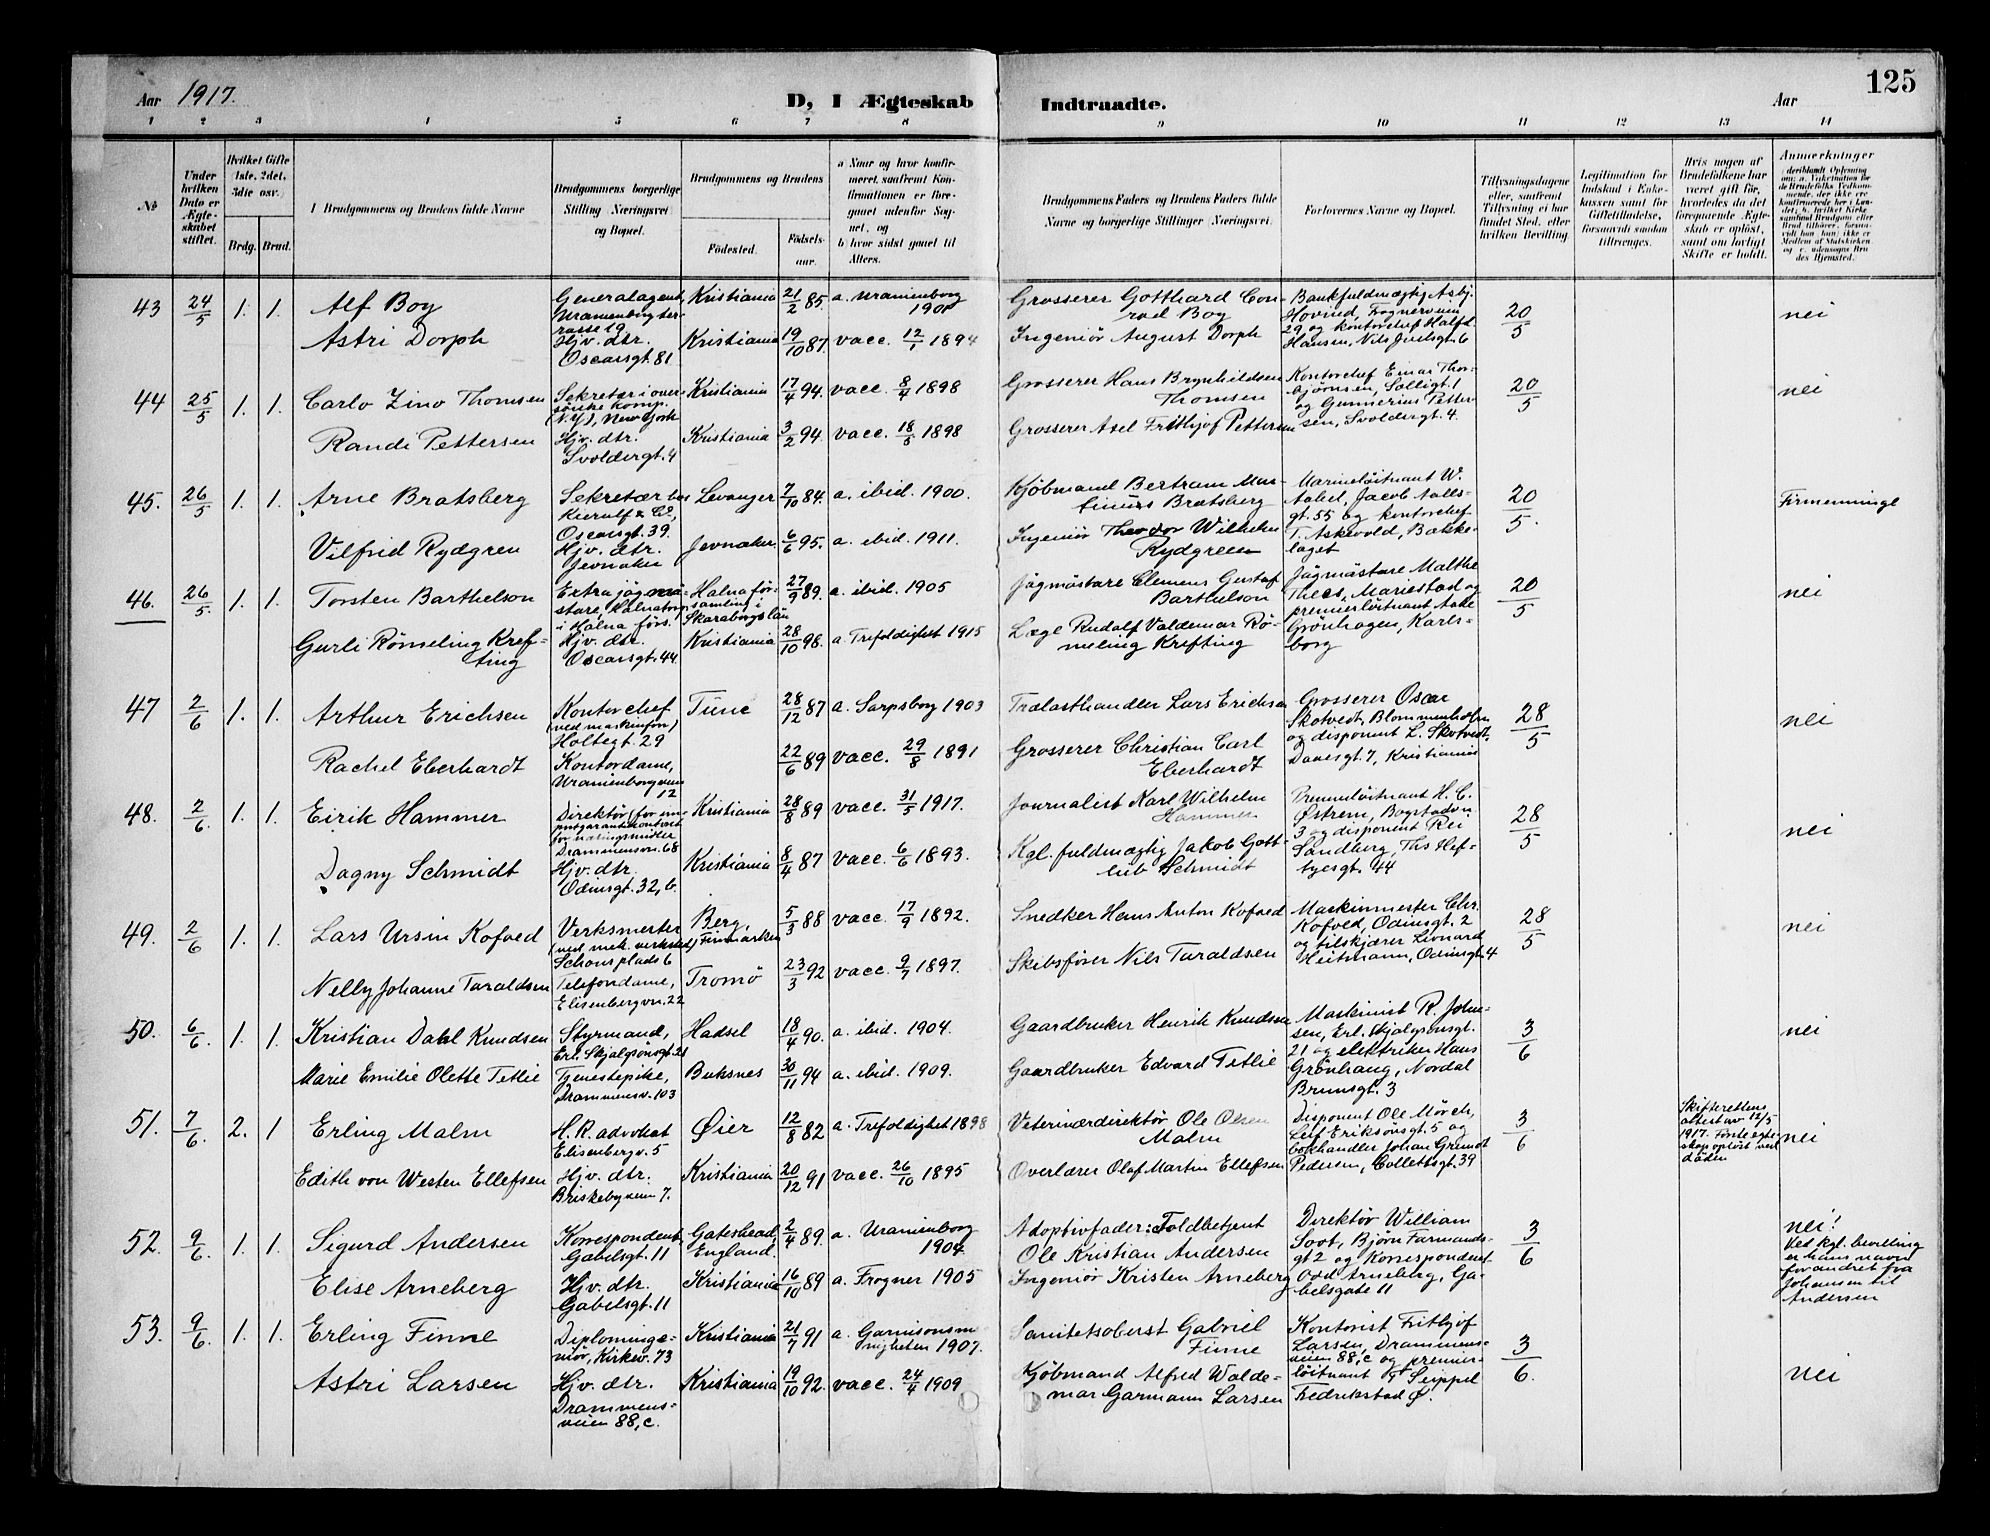 Aar 1917. D, I Ægteskab Indtraadte. Aar 125
1 2 3 4 5 6 7 8 9 10 11 12 13 14
№
Under hvilken Dato er Ægteskabet stiftet.
Hvilket Gifte (1ste, 2det, 3die osv.)
Brdg. Brud.
Brudgommens og Brudens fulde Navne
Brudgommens borgerlige Stilling (Næringsvei) og Bopæl.
Brudgommens og Brudens
Fødested. Fødselsaar.
a Naar og hvor konfirmeret, samt om Konfirmationen er foregaaet udenfor Sognet, og
b hvor sidst gaaet til Alters.
Brudgommens Faders og Brudens Faders fulde Navne og borgerlige Stillinger (Næringsvei).
Forlovernes Navne og Bopæl.
Tillysningsdagene eller, saafremt Tillysning ei har fundet Sted, efter hvilken Bevilling.
Legitimation for Indskud i Enkekassen samt for Giftetilladelse, forsaavidt saadan tiltrænges.
Hvis nogen af Brudefolkene har været gift før, hvorledes da det foregaaende Ægteskab er opløst, samt om lovligt Skifte er holdt.
Anmerkninger
43 24/5 1. 1. Alf Boy
Generalagent, Uranienborgterrasse 19
Kristiania 21/2 85. a. Uranienborg 1901
Grosserer Gotthard Conrad Boy
Bankfuldmægtig Asbj. Hovind, Frognerveien 29 og kontorchef Halfd. Hansen, Nils Juelsgt. 6
20/5 nei
Astri Dorph
Hjv. dtr. Oscarsgt. 81
Kristiania 19/10 87. vacc. 12/1 1894
Ingeniør August Dorph
44 25/5 1. 1. Carlo Zino Thomsen
Sekretær i oversøiske komp. (N.Y), New York
Kristiania 17/4 94. vacc. 8/4 1898
Grosserer Hans Brynhildsen Thomsen
Kontorchef Einar Thorbjørnsen, Solligt. 1 og Gunnerius Pettersen, Svoldergt. 4.
20/5 nei
Randi Pettersen
Hjv. dtr. Svoldergt. 4
Kristiania 3/2 94. vacc. 18/5 1898
Grosserer Axel Frithjof Pettersen
45. 26/5 1. 1. Arne Bratsberg
Sekretær hos Kierulf & Co, Oscarsgt. 39.
Levanger 7/10 84. a. ibid. 1900.
Kjøbmand Bertram Martinius Bratsberg
Marineløitnant W. Aabel, Jacob Aallsgt. 55 og kontorchef T. Askevold, Bækkelaget
20/5.
Vilfrid Rydgren
Hjv. dtr. Jevnaker
Jevnaker 6/6 95. a. ibid. 1911.
Ingeniør Theodor Wilhelm Rydgreen
46. 26/5 1. 1. Torsten Barthelson
Extra jägmästare, Halnatorp i Halna förs.
Halna församling i Skaraborgslän 27/9 89. a. ibid. 1905
Jägmästare Clemens Gustaf Barthelson
Jägmästare Malthe Thees, Mariestad og premierløitnant Grönhagen, Karlsborg
20/5 nei
Gurli Rømeling Krefting
Hjv. dtr. Oscarsgt. 44.
Kristiania 28/10 98. a. Trefoldighet 1915
Læge Rudolf Valdemar Rømeling Krefting
47 2/6 1. 1. Arthur Erichsen
Kontorchef (ved maskinforr.) Holtegt. 29
Tune 28/12 87 a. Sarpsborg 1903
Trælasthandler Lars Erichsen
Grosserer Oscar Skotvedt, Blommenholm og disponent L. Skotvedt, Daaesgt. 7, Kristiania
28/5 nei
Rachel Eberhardt
Kontordame, Uranienborgveien 12
22/6 89 vacc. 29/8 1891
Grosserer Christian Carl Eberhardt
48. 2/6. 1. 1. Eirik Hammer
Direktør (for importgarantikontoret for næringsmidler) Drammensvn. 68
Kristiania 28/8 89 vacc. 31/5 1917.
Journalist Karl Wilhelm Hammer
Premierløitnant H. C. Østrem, Bogstadvn. 3 og disponent Rei Sandberg, Ths Heftyesgt. 44
28/5 nei
Dagny Schmidt
Hjv. dtr. Odinsgt. 32, b.
Kristiania 8/4 87 vacc. 6/6 1893.
Kgl. fuldmægtig Jakob Gottlieb Schmidt
49. 2/6 1. 1. Lars Ursin Kofoed
Verksmester (ved mek. verksted) Schous plads 6
Berg, Finmarken 5/3 88 vacc. 17/9 1892.
Snedker Hans Anton Kofoed
Maskinmester Chr. Kofoed, Odinsgt. 2 og tilskjærer Leonard Heitmann, Odinsgt. 4
28/5 nei
Nelly Johanne Taraldsen
Telefondame, Elisenbergvn. 22
Tromø 23/3 92 vacc. 9/7 1897.
Skibsfører Nils Taraldsen
50. 6/6. 1. 1. Kristian Dahl Knudsen
Styrmand, Erl. Skjalgsönsgt. 21
Hadsel 18/4 90. a. ibid. 1904.
Gaardbruker Henrik Knudsen
Maskinist R. Johnsen, Erl. Skjalgsönsgt. 21 og elektriker Hans Grönhaug, Nordal Brunsgt. 3
3/6 nei
Marie Emilie Olette Tetlie
Tjenestepike, Drammensv. 103
Buksnes 30/11 94 a. ibid. 1909.
Gaardbruker Edvard Tetlie
51. 7/6. 2. 1 Erling Malm
H. R. advokat Elisenbergv. 5
Øier 12/8 82 a. Trefoldighet 1898
Veterinærdirektør Ole Olsen Malm
Disponent Ole Mörch, Leif Eriksönsgt. 5 og bokhandler Johan Grundt Pedersen, Collettsgt. 39
3/6
Skifterettens attest av 12/5 1917. Første egteskap opløst ved döden
nei
Edith von Westen Ellefsen
Hjv. dtr. Briskebyveien 7.
Kristiania 20/12 91 vacc. 26/10 1895
Overlærer Olaf Martin Ellefsen
52. 9/6. 1. 1. Sigurd Andersen
Korrespondent, Gabelsgt. 11
Gateshead, England. 2/4 89. a. Uranienborg 1904.
Adoptivfader: Toldbetjent Ole Kristian Andersen
Direktør William Soot, Bjørn Farmandsgt 2 og Korrespondent Odd Arneberg, Gabelsgate 11
3/6
nei! Ved kgl. bevilling er hans navn forandret fra Johansen til Andersen
Elise Arneberg
Hjv. dtr. Gabelsgt. 11
Kristiania 16/10 89 a. Frogner 1905
Ingeniør Kristen Arneberg
53. 9/6. 1. 1. Erling Finne
Diplomingeniør, Kirkev. 73
Kristiania 21/7 91 a. Garnisonsmenigheten 1907.
Sanitetsoberst Gabriel Finne
Kontorist Fritjof Larsen, Drammensveien 88, c og premierløitnant F Seippel Fredrikstad Ø.
3/6. nei
Astri Larsen
Hjv. dtr. Drammensveien 88, c.
Kristiania 19/10 92. vacc. 24/4 1909
Kjøbmand Alfred Waldemar Garmann Larsen